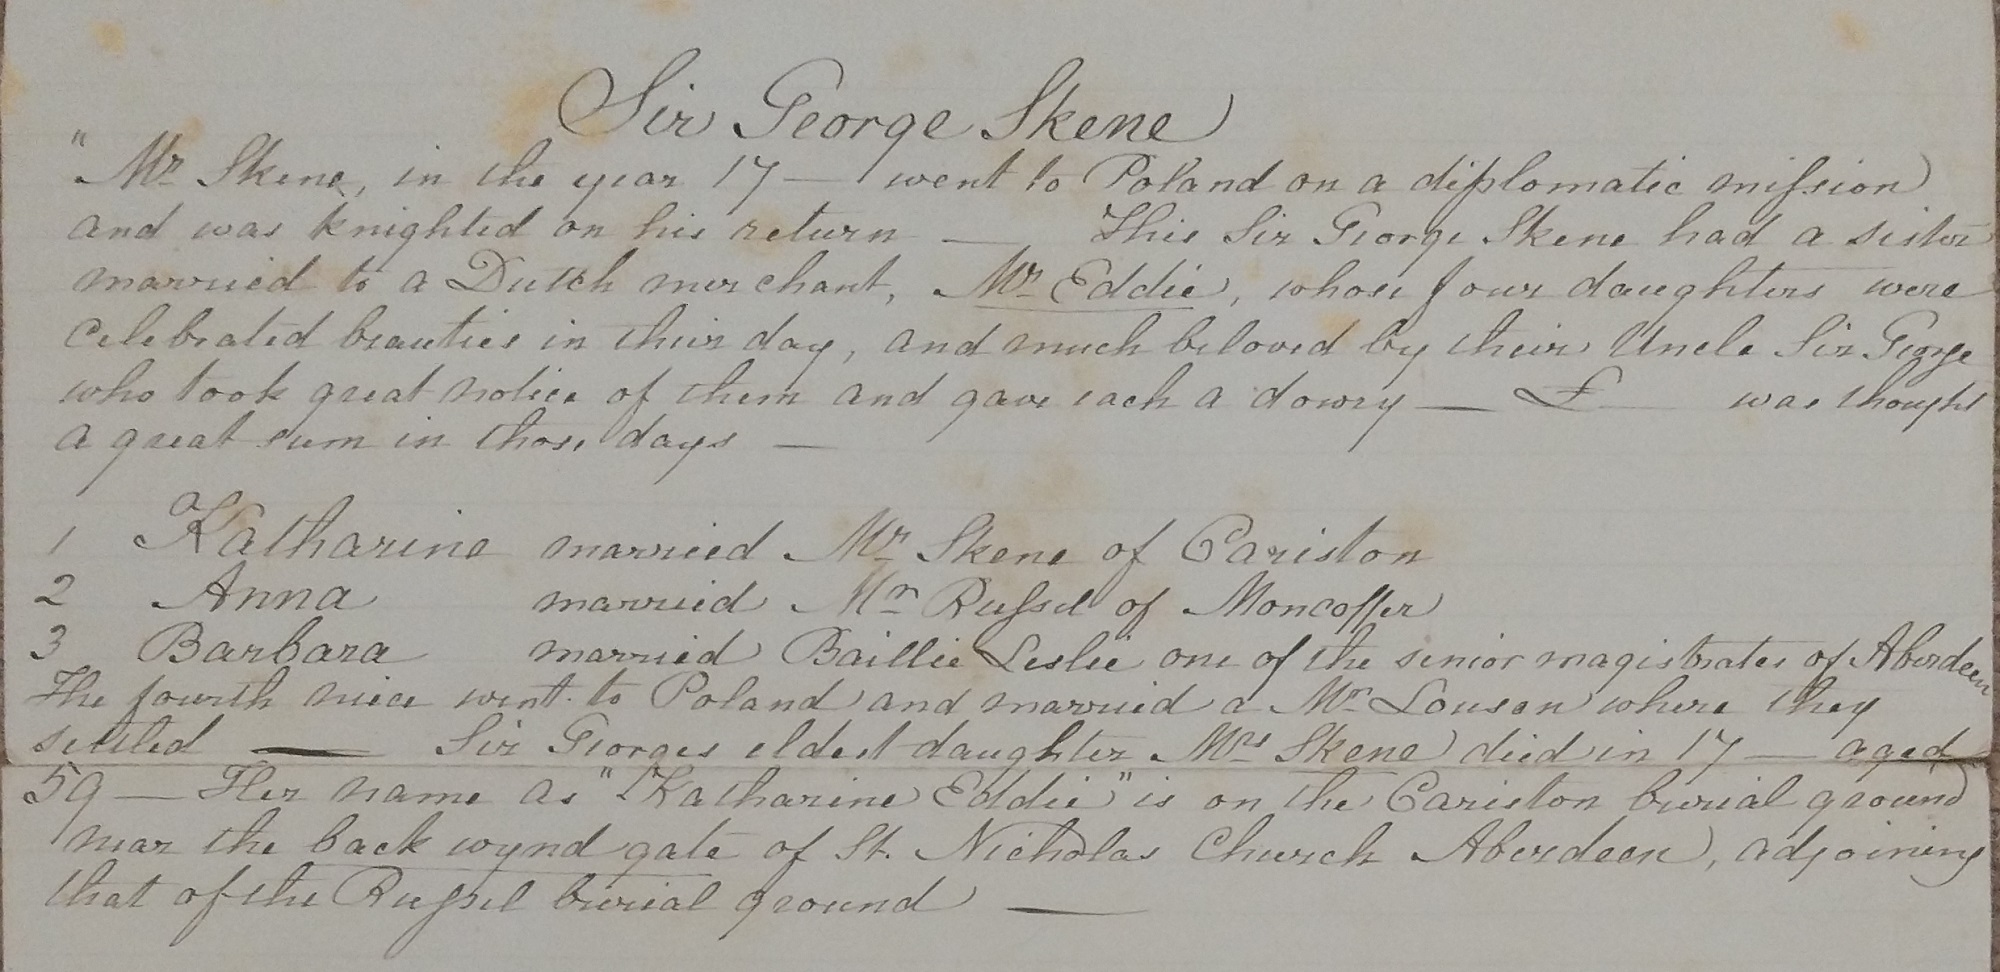 Sir George Skene
" Mr Skene, in the year 17— went to Poland on a diplomatic mission
and was knighted on his return — This Sir George Skene had a sister
married to a Dutch merchant, Mr Eddie, whose four daughters were
celebrated beauties in their day, and much beloved by their Uncle Sir George
who took great notice of them and gave each a dowry — £ — was thought
a great sum in those days —
1 Katharine married Mr Skene of Cariston
2 Anna married Mr Russel of Moncoffer
3 Barbara married Baillie Leslie one of the senior magistrates of Aberdeen
The fourth niece went to Poland and married a Mr Lousen where they
settled — Sir Georges eldest daughter Mrs Skene died in 17— aged
59 — Her name as "Katharine Eddie" is on the Cariston burial ground
near the back wynd gate of St. Nicholas Church Aberdeen, adjoining
that of the Russel burial ground —